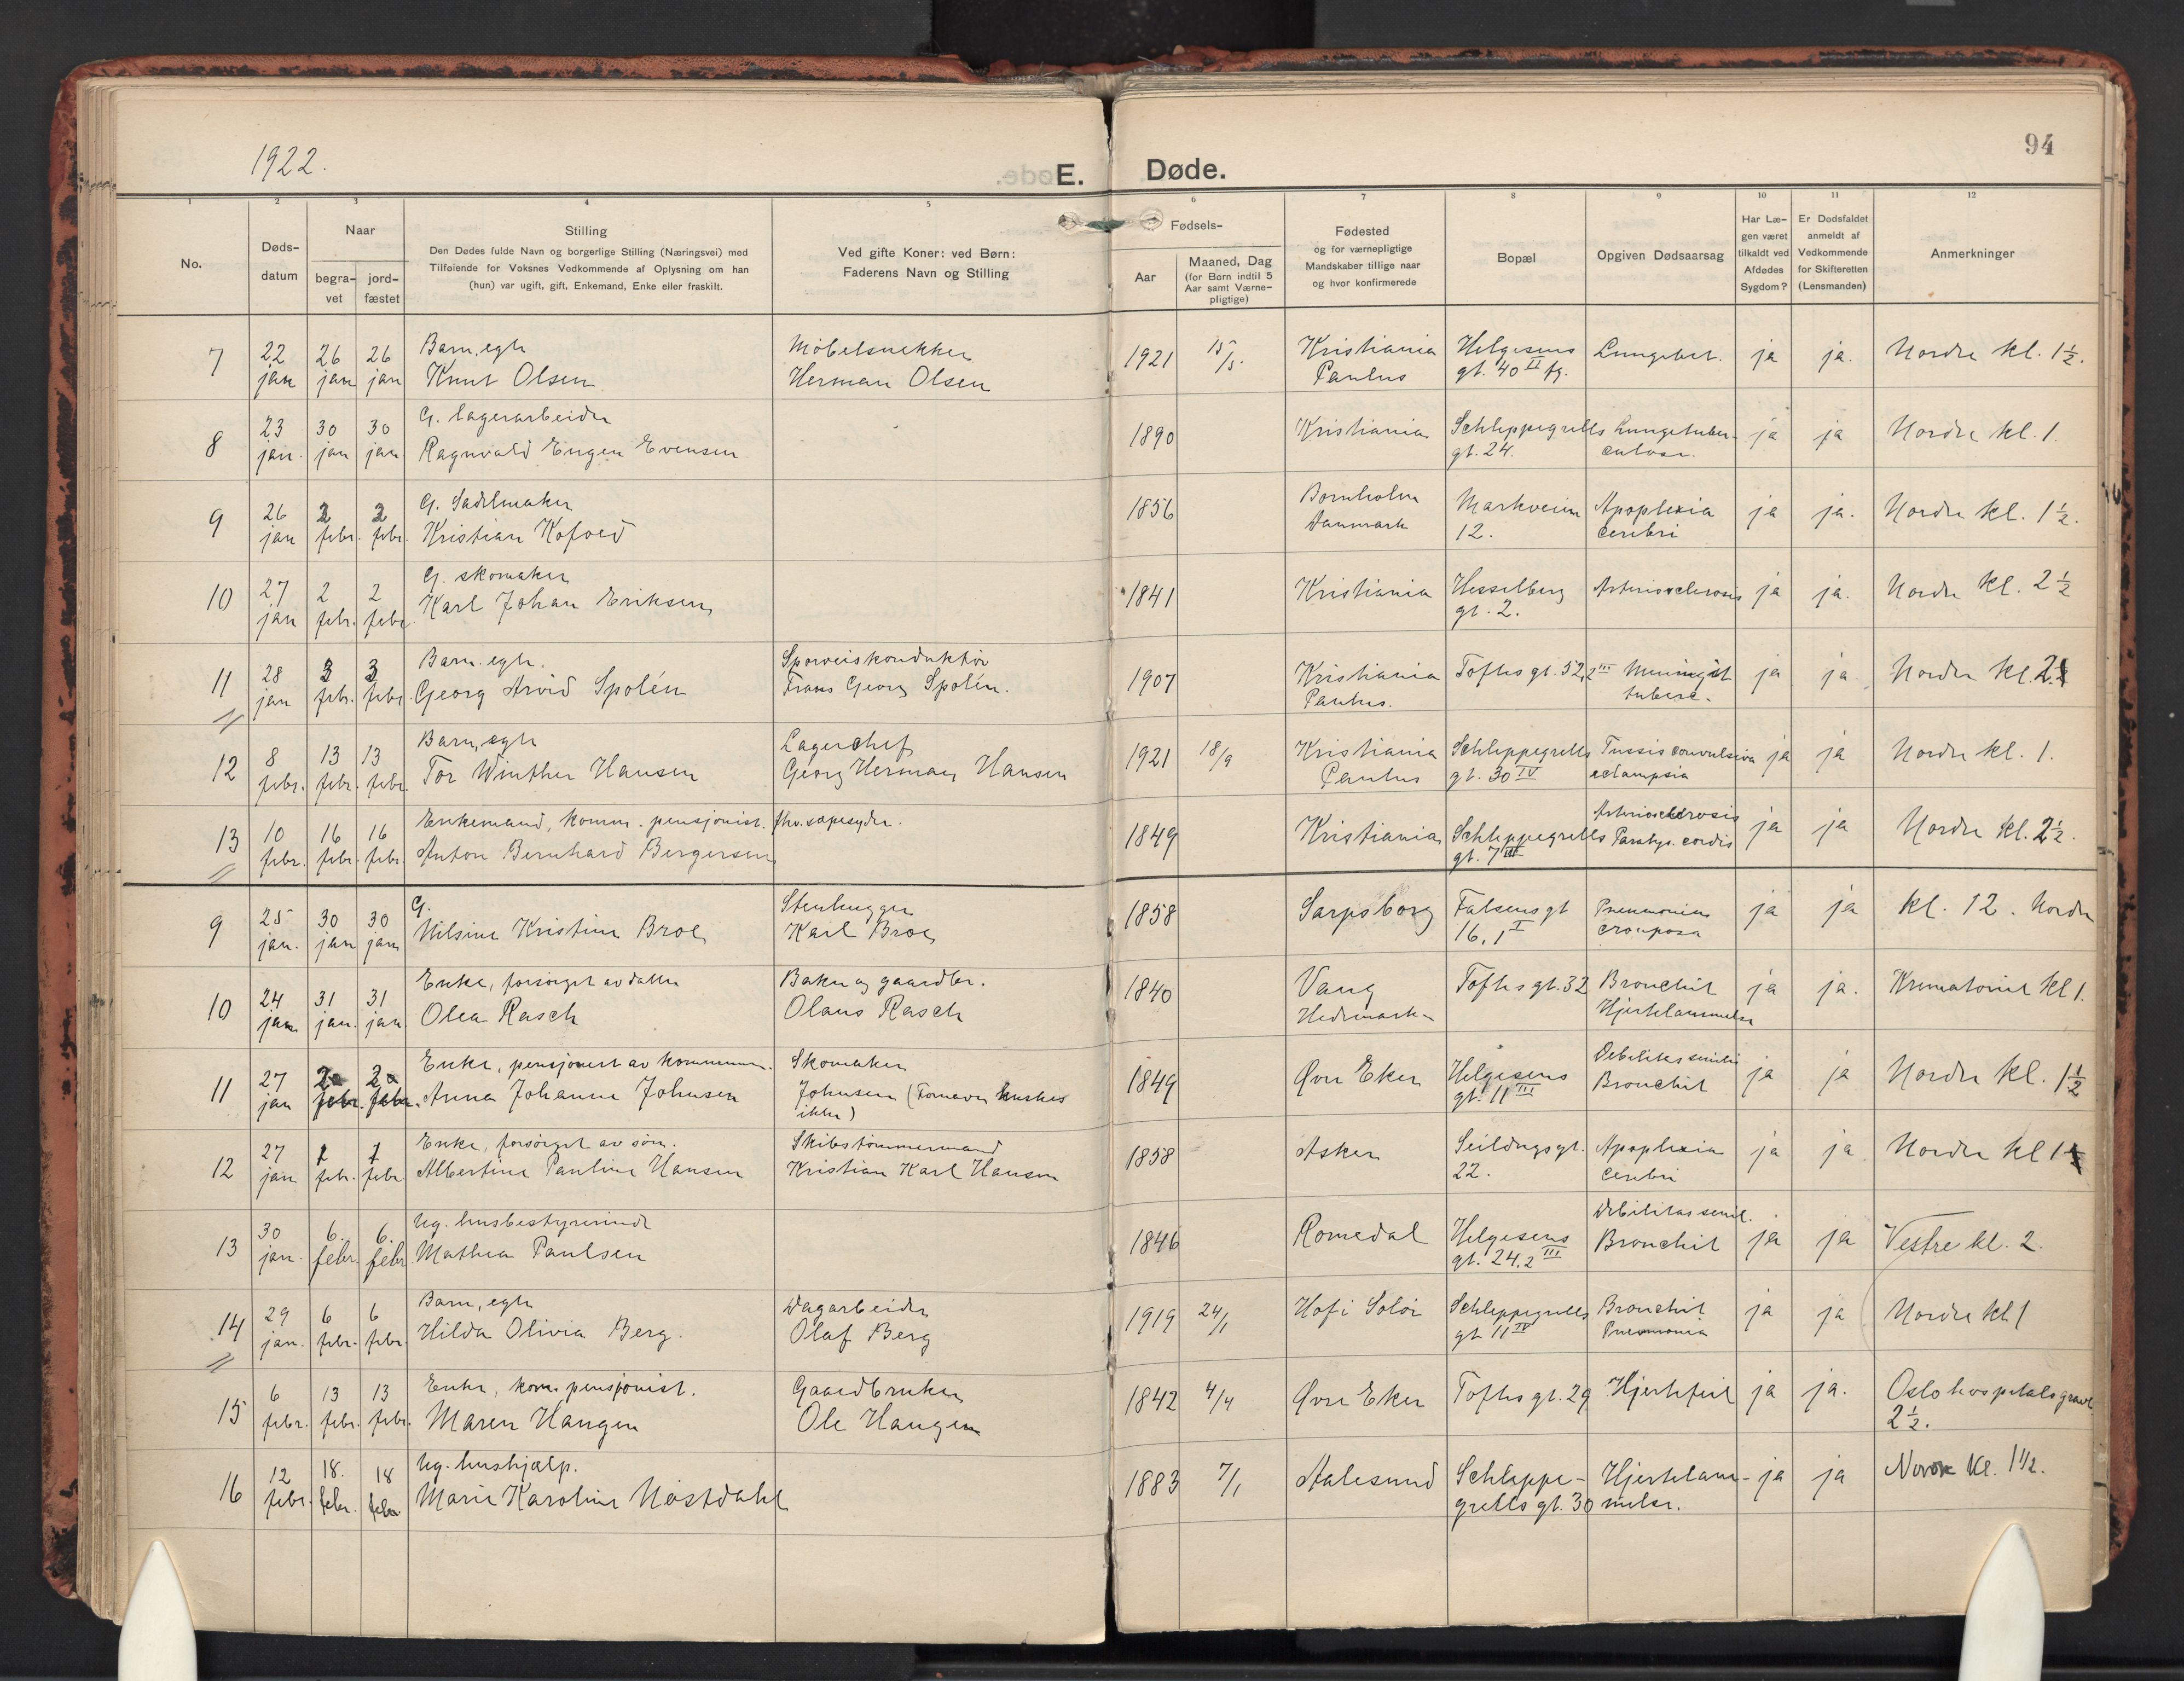 1922.
E. Døde.
94
1 2 3 4 5 6 7 8 9 10 11 12
No.
Døds-
datum
Naar
begra-
vet
jord-
fæstet
Stilling
Den Dødes fulde Navn og borgerlige Stilling (Næringsvei) med
Tilføiende for Voksnes Vedkommende af Oplysning om han
(hun) var ugift, gift, Enkemand, Enke eller fraskilt.
Ved gifte Koner: ved Børn:
Faderens Navn og Stilling
Fødsels-
Aar
Maaned, Dag
(for Børn indtil 5
Aar samt Værne-
pligtige)
Fødested
og for værnepligtige
Mandskaber tillige naar
og hvor konfirmerede
Bopæl
Opgiven Dødsaarsag
Har Læ-
gen været
tilkaldt ved
Afdødes
Sygdom?
Er Dødsfaldet
anmeldt af
Vedkommende
for Skifteretten
(Lensmanden)
Anmerkninger
7 22 26 26 Barn, egte Møbelsnekker 1921 15/5. Kristiania Helgesens Lungebet. ja ja. Nordre kl. 1½.
jan jan jan Knut Olsen Herman Olsen Paulus gt. 40 II fg.
8 23 30 30 G. lagerarbeider 1890 Kristiania Schleppegrells Lungetuber- ja ja Nordre kl. 1.
jan. jan jan Ragnvald Eugen Evensen gt. 24. culose.
9 26 2 2 G. Sadelmaker 1856 Bornholm Markveien Apoplexia ja ja. Nordre kl. 1½.
jan febr. febr. Kristian Kofoed Danmark 12. cerebri
10 27 2 2 G. skomaker 1841 Kristiania Hesselberg Arteriosclerosis ja ja. Nordre kl. 2½
jan febr. febr Karl Johan Eriksen gt. 2.
11 28 3 3 Barn. egte. Sporveiskonduktør 1907 Kristiania Toftes gt. 52, 2 III Meningit ja ja Nordre kl. 2.
jan febr. febr. Georg Arvid Spolén Frans Georg Spolén. Paulus. tuberc.
12 8 13 13 Barn, egte Lagerchef 1921 18/9 Kristiania Schleppegrells Tussis convulsiva ja ja Nordre kl. 1.
febr. febr. febr. Tor Winther Hansen Georg Herman Hansen Paulus gt. 30 IV eclampsia
13 10 16 16 Enkemand, komm. pensjonist. fhv. sæpesyder. 1849 Kristiania Schleppegrells Arteriosclerosis ja ja Nordre kl. 2½.
febr. febr. febr. Anton Bernhard Bergersen gt. 7 III Paralys. cordis
9 25 30 30 G. Stenhugger 1858 Sarpsborg Falsens gt Pneumonia ja ja kl. 12. Nordre
jan. jan jan Nilsine Kristine Broe Karl Broe 16, 1 I crouposa
10 24 31 31 Enke, forsørget av datter Baker og gaardbr. 1840 Vang Toftes gt. 32 Bronchit ja ja. Krematoriet kl 1.
jan jan. jan. Olea Rasch Olaus Rasch Hedemark- Hjertelammelse
11 27 2 2 Enke, pensjonert av kommunen. Skomaker 1849 Øvre Eker Helgesens Debilitas senilis ja ja Nordre kl. 1½
jan febr. febr. Anna Johanne Johnsen Johnsen (Fornavn huskes gt. 11 III Bronchit
ikke)
12 27 1 1 Enke, forsørget av søn. Skibstømmermand 1858 Asker Seildugsgt. Apoplexia ja ja Nordre kl 1
jan febr. febr. Albertine Pauline Hansen Kristian Karl Hansen 22. cerebri
13 30 6. 6. Ug. husbestyrerinde 1846 Romedal Helgesens Debilitas senil. ja ja Vestre kl. 2.
jan. febr. febr. Mathea Paulsen gt. 24, 2 III Bronchit
14 29 6 6 Barn, egte Dagarbeider 1919 24/1 Hof i Solør Schleppegrells Bronchit ja ja Nordre kl. 1
jan. febr. febr. Hilda Olivia Berg. Olaf Berg gt 11 IV Pneumonia
15 6 13 13 Enke, kom. pensjonist. Gaardbruker 1842 4/4 Øvre Eker Toftes gt. 29 Hjertefeil ja ja. Oslo hospitals gravl.
febr. febr. febr. Maren Haugen Ole Haugen 2½.
16 12 18. 18 Ug. hushjælp. 1883 7/1 Aalesund Schleppe- Hjertelam- ja ja Nordre kl. 1½.
febr. febr. febr. Marie Karoline Nøstdahl grells gt. 30 melse.